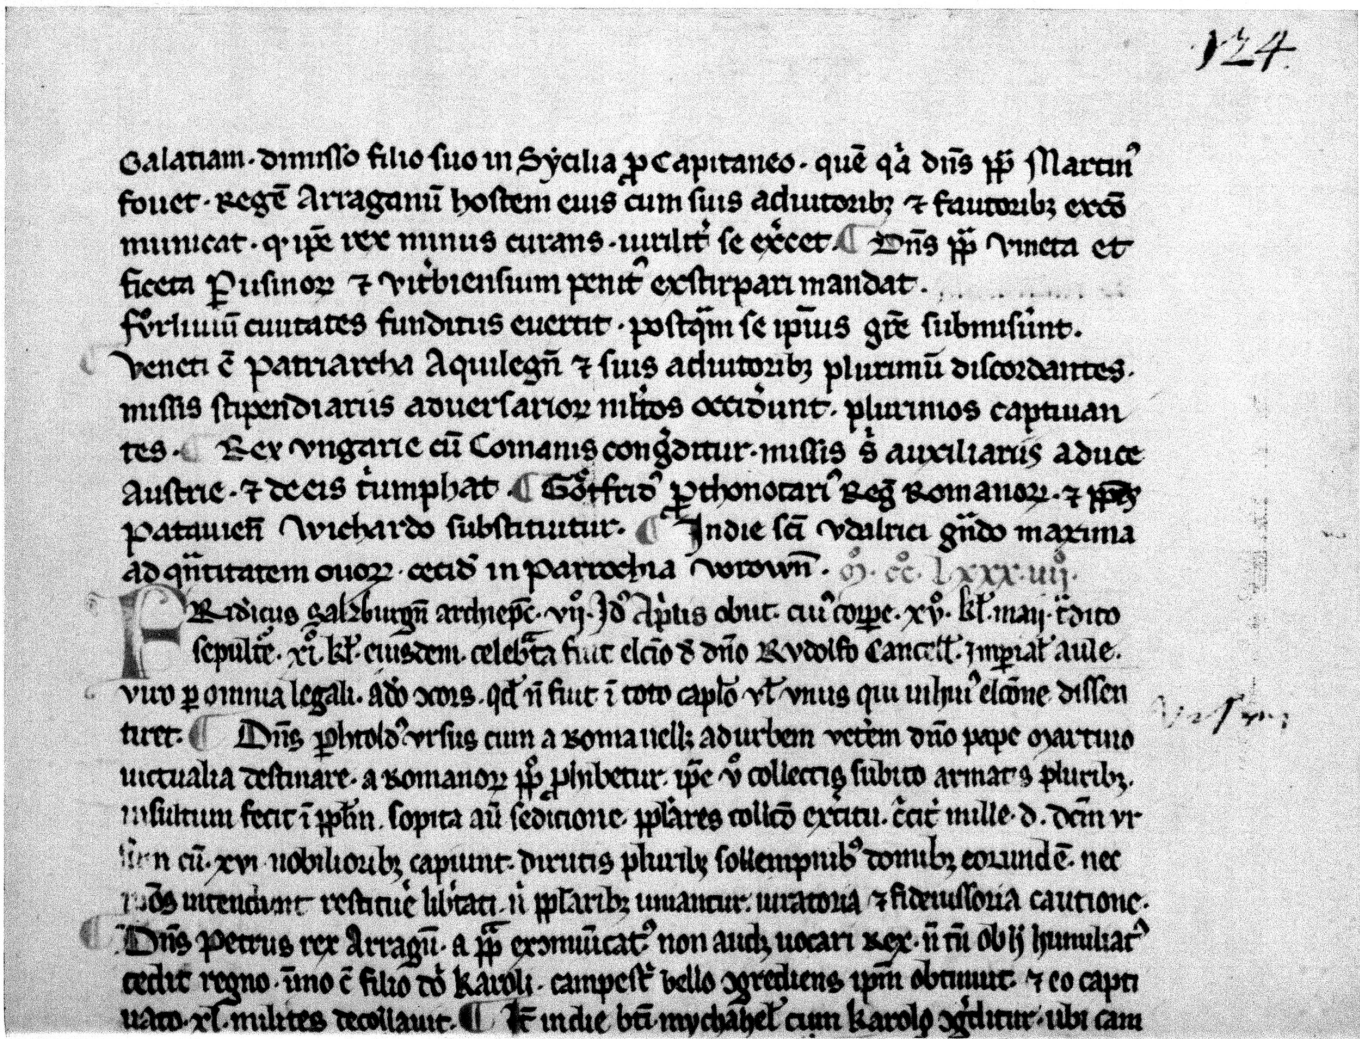 124
Galatiam · dimisso filio suo in Sycilia ꝑ Capitaneo · quē q̄a dn̄s pp̄ Martin᷒
fouet · Regē Arraganū hostem eius cum suis adiutoribꝫ ⁊ fautoribꝫ exco᷒
municat · q ip̄e rex minus curans · uirilit᷒ se ex̄cet ¶ Dn̄s pp̄ vineta et
ficeta ꝑusinoꝝ ⁊ vit̄biensium penit᷒ exstirpari mandat ·
forliuiū ciuitates funditus euertit · postq̄m se ip̄ius gr̄e submiser̄unt ·
¶ Veneti c̄ Patriarcha Aquilegn̄ ⁊ suis adiutoribꝫ plurimū discordantes ·
missis stipendiariis aduersarioꝝ ml̄tos occider̄unt · plurimos captiuan
tes · ¶ Rex vngarie cū Comanis congr̄ditur · missis s̄ auxiliariis a duce
Austrie · ⁊ de eis t̄umphat ¶ Gotfrid᷒ ꝓthonotari᷒ Reḡ Romanoꝝ · ⁊
Patauien̄ Wichardo substituitur · ¶ In die sc̄i vdalrici gn̄do maxima
ad qn̄titatem ouoꝝ · cecid᷒ in parrochia worown̄ · m̊ · cc̊ · lxxx · iiij̊ ·
FRid̄icus Salzburgn̄ archiep̄c · vij̊ · Id᷒ Ap̄lis obiit · cui᷒ corꝑe · xv̊ · kl̄ · maij · t̄dito
sepult̄e · xi̊ · kl̄ · eiusdem · celebr̄ta fuit elc̄io d̄ dn̄o Rvdolfo Cancell̄ · Imꝑial̄ aule ·
viro ꝑ omnia legali · ad̄o ꝯcors · qd̄ n̄ fuit ī toto caplo᷒ vl̄ vnus qui in hui᷒ elc̄one dissen
tiret · ¶ Dn̄s ꝑhtold᷒ vrsus cum a Romanell᷒ ad urbem vet̄em dn̄o pape martino
uictualia destinare · a Romanoꝝ pp̄lo ꝓhibetur · ip̄e v̊ collectis subito armatis pluribꝫ ·
insultum fecit ī pp̄lm · sopita aū sedicione · pp̄lares collc̄o ex̄citu · c̄cit̄ mille · d · dc̄m vr
cū · xvi · nobilioribꝫ capiunt · dirutis pluribꝫ sollempnibꝫ domibꝫ eorundē · nec
intendunt restitue᷒ lib̄tati · n̄ pp̄laribꝫ uniantur · iuratoria ⁊ fideiussoria cautione ·
¶ Dn̄s Petrus rex Arragn̄ · a pp̄ exꝯmūicat᷒ non audꝫ uocari Rex · n̄ tn̄ ob h᷒ humiliat᷒
cedit regno · īmo c̄ filio dn̄i Karoli · campest᷒ bello ꝯgrediens ip̄m obtinuit · ⁊ eo capti
uato · xl · milites decollauit · ¶ It̄ in die bt̄i mychahel̄ cum karolo ꝯgr̄ditur · ubi cam